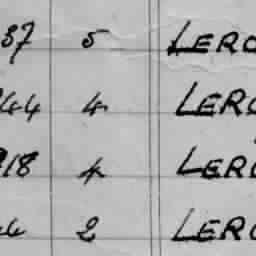 37 5 LERO
44 4 LERO
918 4 LERO
4 2 LERO